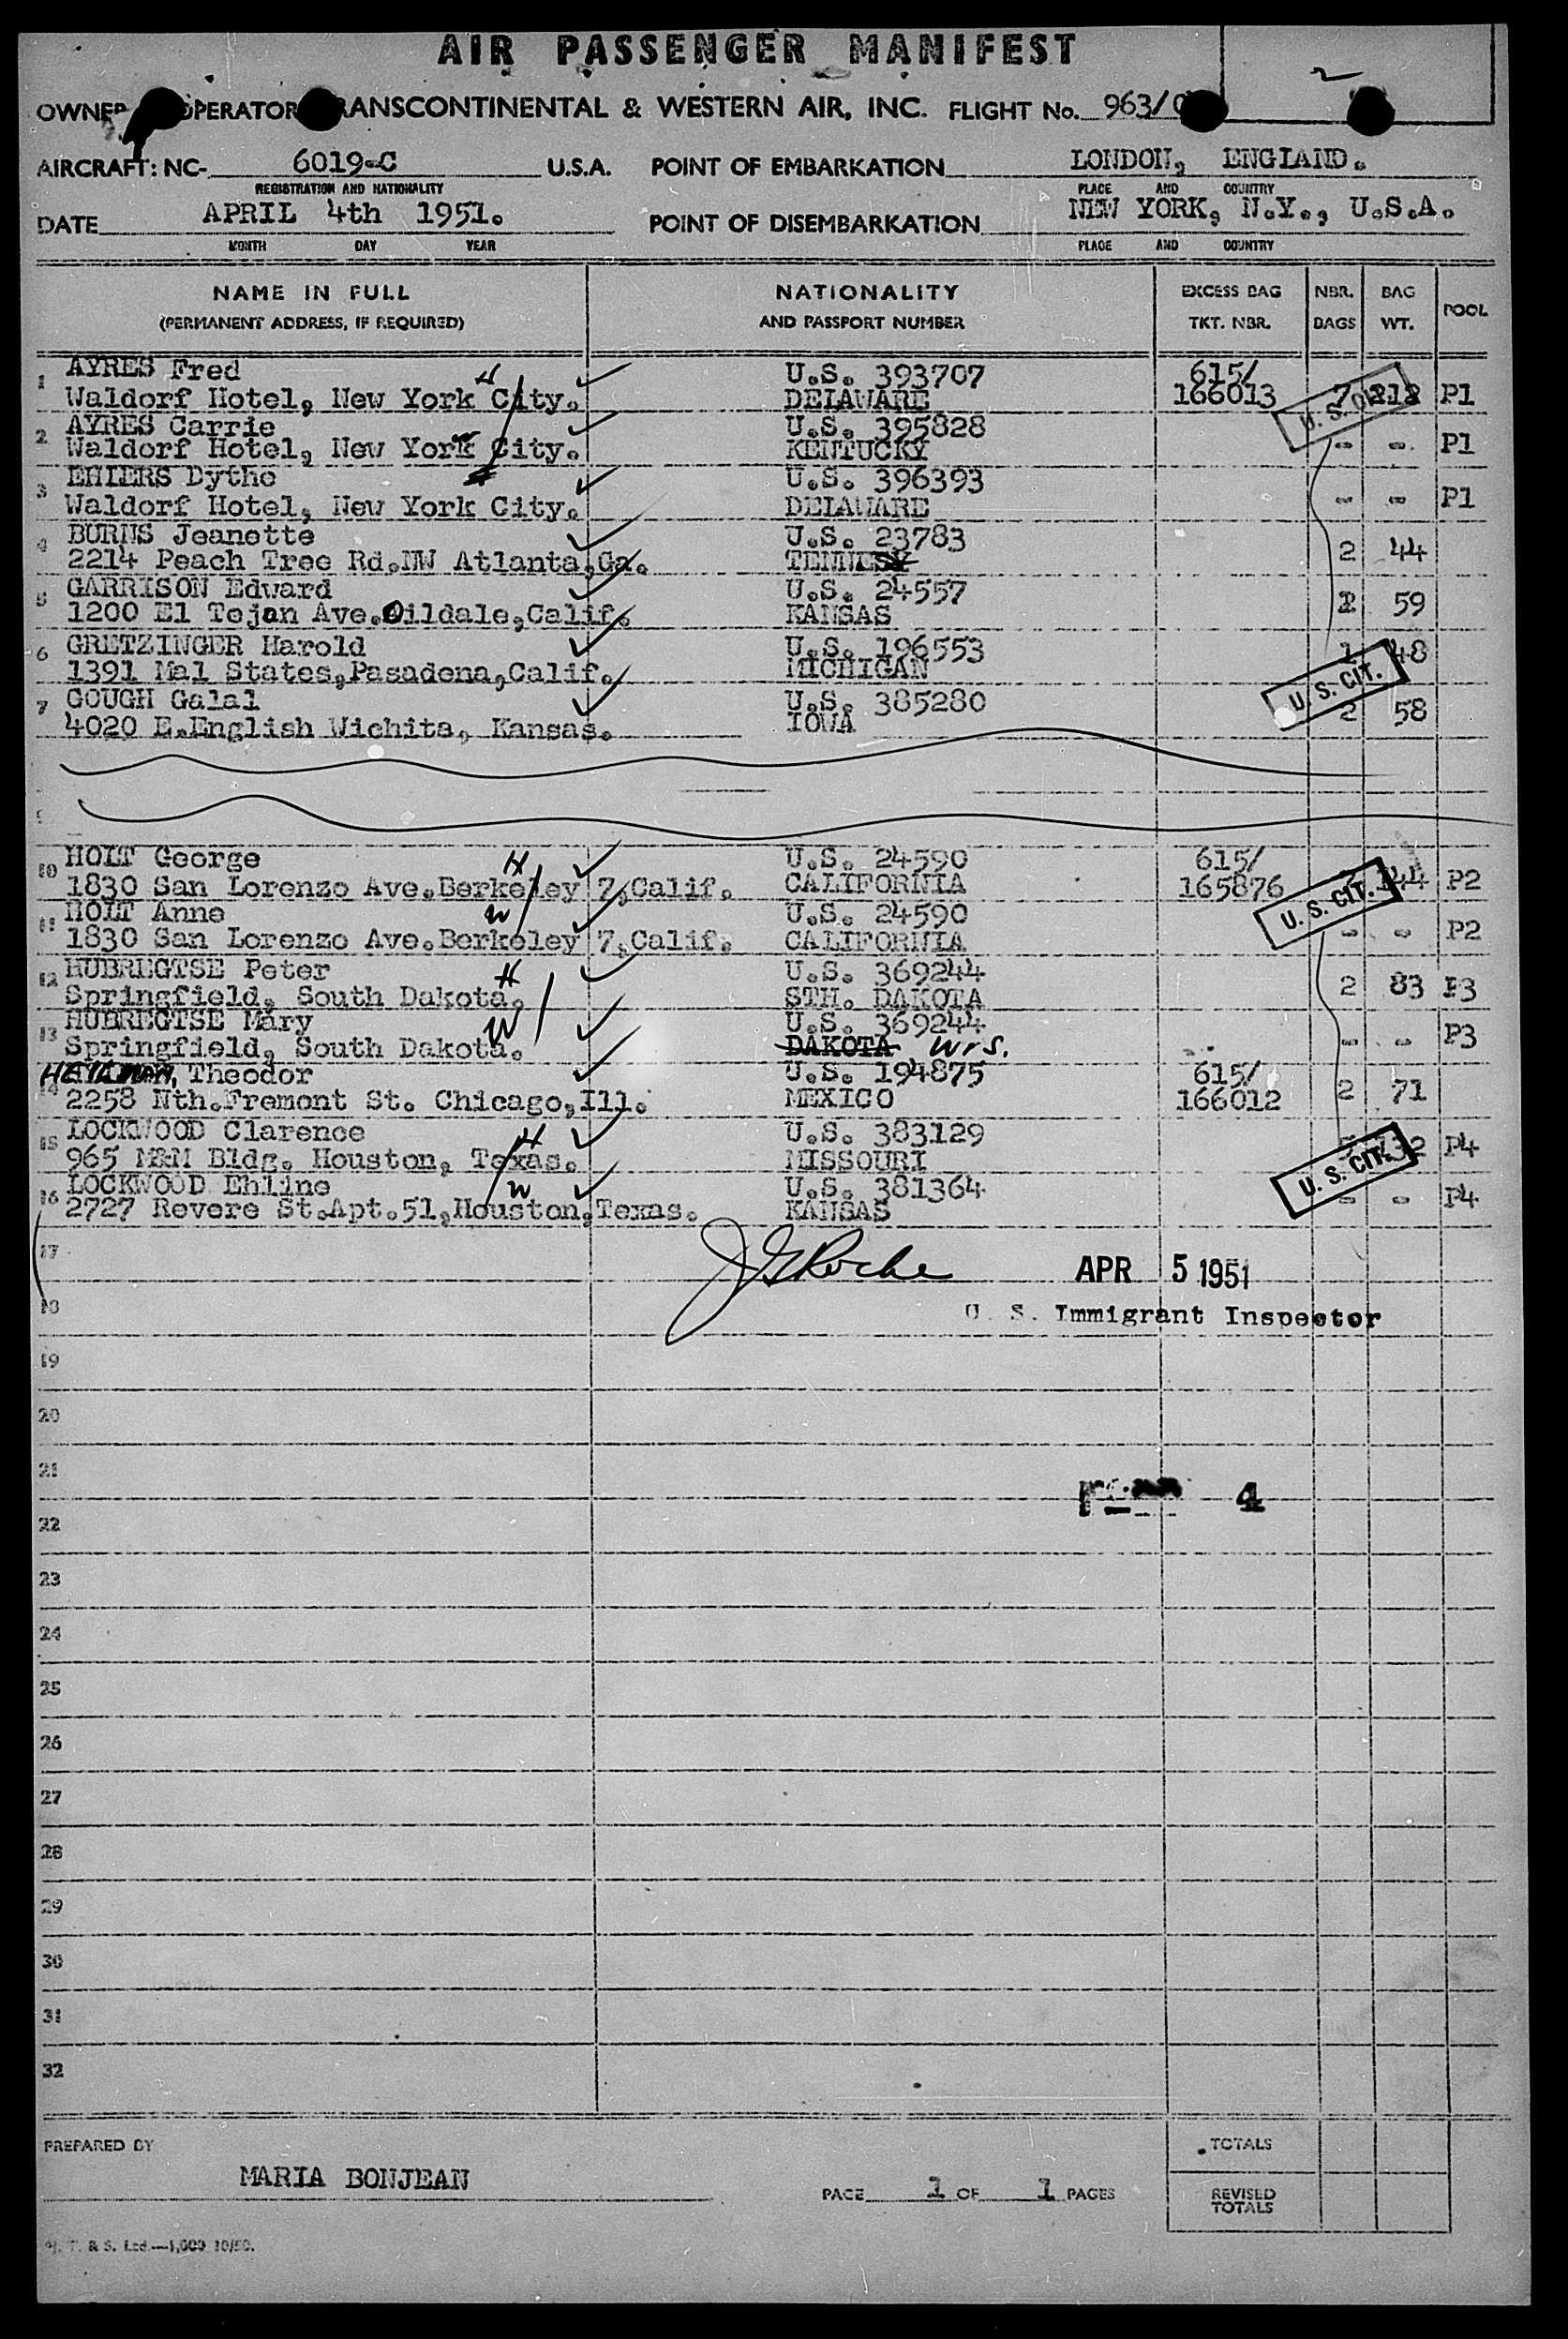 AIR PASSENGER MANIFEST
2
OWNER OPERATOR TRANSCONTINENTAL & WESTERN AIR, INC. FLIGHT No. 963/
AIRCRAFT: NC- 6019-C U.S.A. POINT OF EMBARKATION LONDON, ENGLAND.
REGISTRATION AND NATIONALITY PLACE AND COUNTRY
DATE APRIL 4th 1951. POINT OF DISEMBARKATION NEW YORK, N.Y., U.S.A.
MONTH DAY YEAR PLACE AND COUNTRY
NAME IN FULL NATIONALITY EXCESS BAG NBR. BAG POOL
(PERMANENT ADDRESS, IF REQUIRED) AND PASSPORT NUMBER TKT. NBR. BAGS WT.
1 AYRES Fred H U.S. 393707 615/
Waldorf Hotel, New York City. DELAWARE 166013 7 212 P1
U. S. CIT.
2 AYRES Carrie U.S. 395828
Waldorf Hotel, New York City. W KENTUCKY - - P1
3 EHLERS Dythe U.S. 396393
Waldorf Hotel, New York City. DELAWARE - - P1
4 BURNS Jeanette U.S. 23783
2214 Peach Tree Rd.NW Atlanta,Ga. 2 44
5 GARRISON Edward U.S. 24557
1200 El Tejon Ave.Oildale,Calif. KANSAS 59
6 GRETZINGER Harold U.S. 196553
1391 Mal States,Pasadena,Calif. MICHIGAN 1 48
U. S. CIT.
7 GOUGH Galal U.S. 385280
4020 E.English Wichita, Kansas. IOWA 2 58
9
10 HOLT George H U.S. 24590 615/
1830 San Lorenzo Ave.Berkeley 7,Calif. CALIFORNIA 165876 144 P2
U. S. CIT.
11 HOLT Anne W U.S. 24590
1830 San Lorenzo Ave.Berkeley 7,Calif. CALIFORNIA - - P2
12 HUBREGTSE Peter H U.S. 369244
Springfield, South Dakota. STH. DAKOTA 2 83 P3
13 HUBREGTSE Mary W U.S. 369244
Springfield, South Dakota. DAKOTA Wis. - - P3
14 Theodor U.S. 194875 615/
2258 Nth.Fremont St. Chicago,Ill. MEXICO 166012 2 71
15 LOCKWOOD Clarence H U.S. 383129
965 M&M Bldg. Houston, Texas. MISSOURI 132 P4
U. S. CIT.
16 LOCKWOOD Ehline W U.S. 381364
2727 Revere St.Apt.51,Houston,Texas. KANSAS - - P4
17 J G Roche APR 5 1951
18 U. S. Immigrant Inspector
19
20
21
4
22
23
24
25
26
27
28
29
30
31
32
PREPARED BY TOTALS
MARIA BONJEAN PAGE 1 OF 1 PAGES REVISED
TOTALS
T. & S. Ltd.—1,000 10/50.